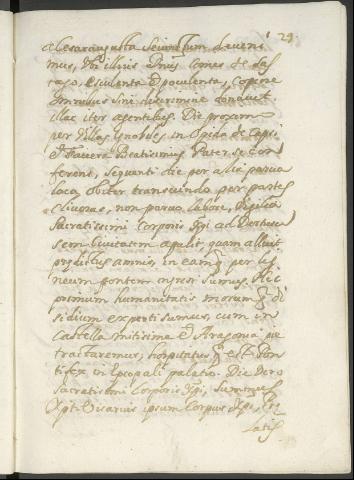 29
a Cesaraugusta Seiunctum deveni
mus, Vbi illuris Dñus comes de Sas
tago, esculenta et poculenta, copiose
omnibus sine discrimine donavit
illac iter agentibus. Die proxima
per Villas ignobiles, in Opida de Caspi
et Favera Beatissimus Pater se con
ferens, sequenti die per alia parva
loca, obiter transeundo per partes
clivosas, non parvo labore, Vigilia
Sacratissimi Corporis Xpi ad Dertusa
sem Civitatem apulit, quam alluit
predictus amnis, in eamq per lig
neum pontem ingressi sumus. Hic
primum humanitatis morumq di
sidium experti sumus, cum in
Castella mitissime et Aragonia per
tractaremur, hospitatus q est Pon
tifex in Episcopali palatio. Die vero
Sacratissimi Corporis Xpi, Summus
Xpi Vicarius ipsum Corpus Xpi,
latis